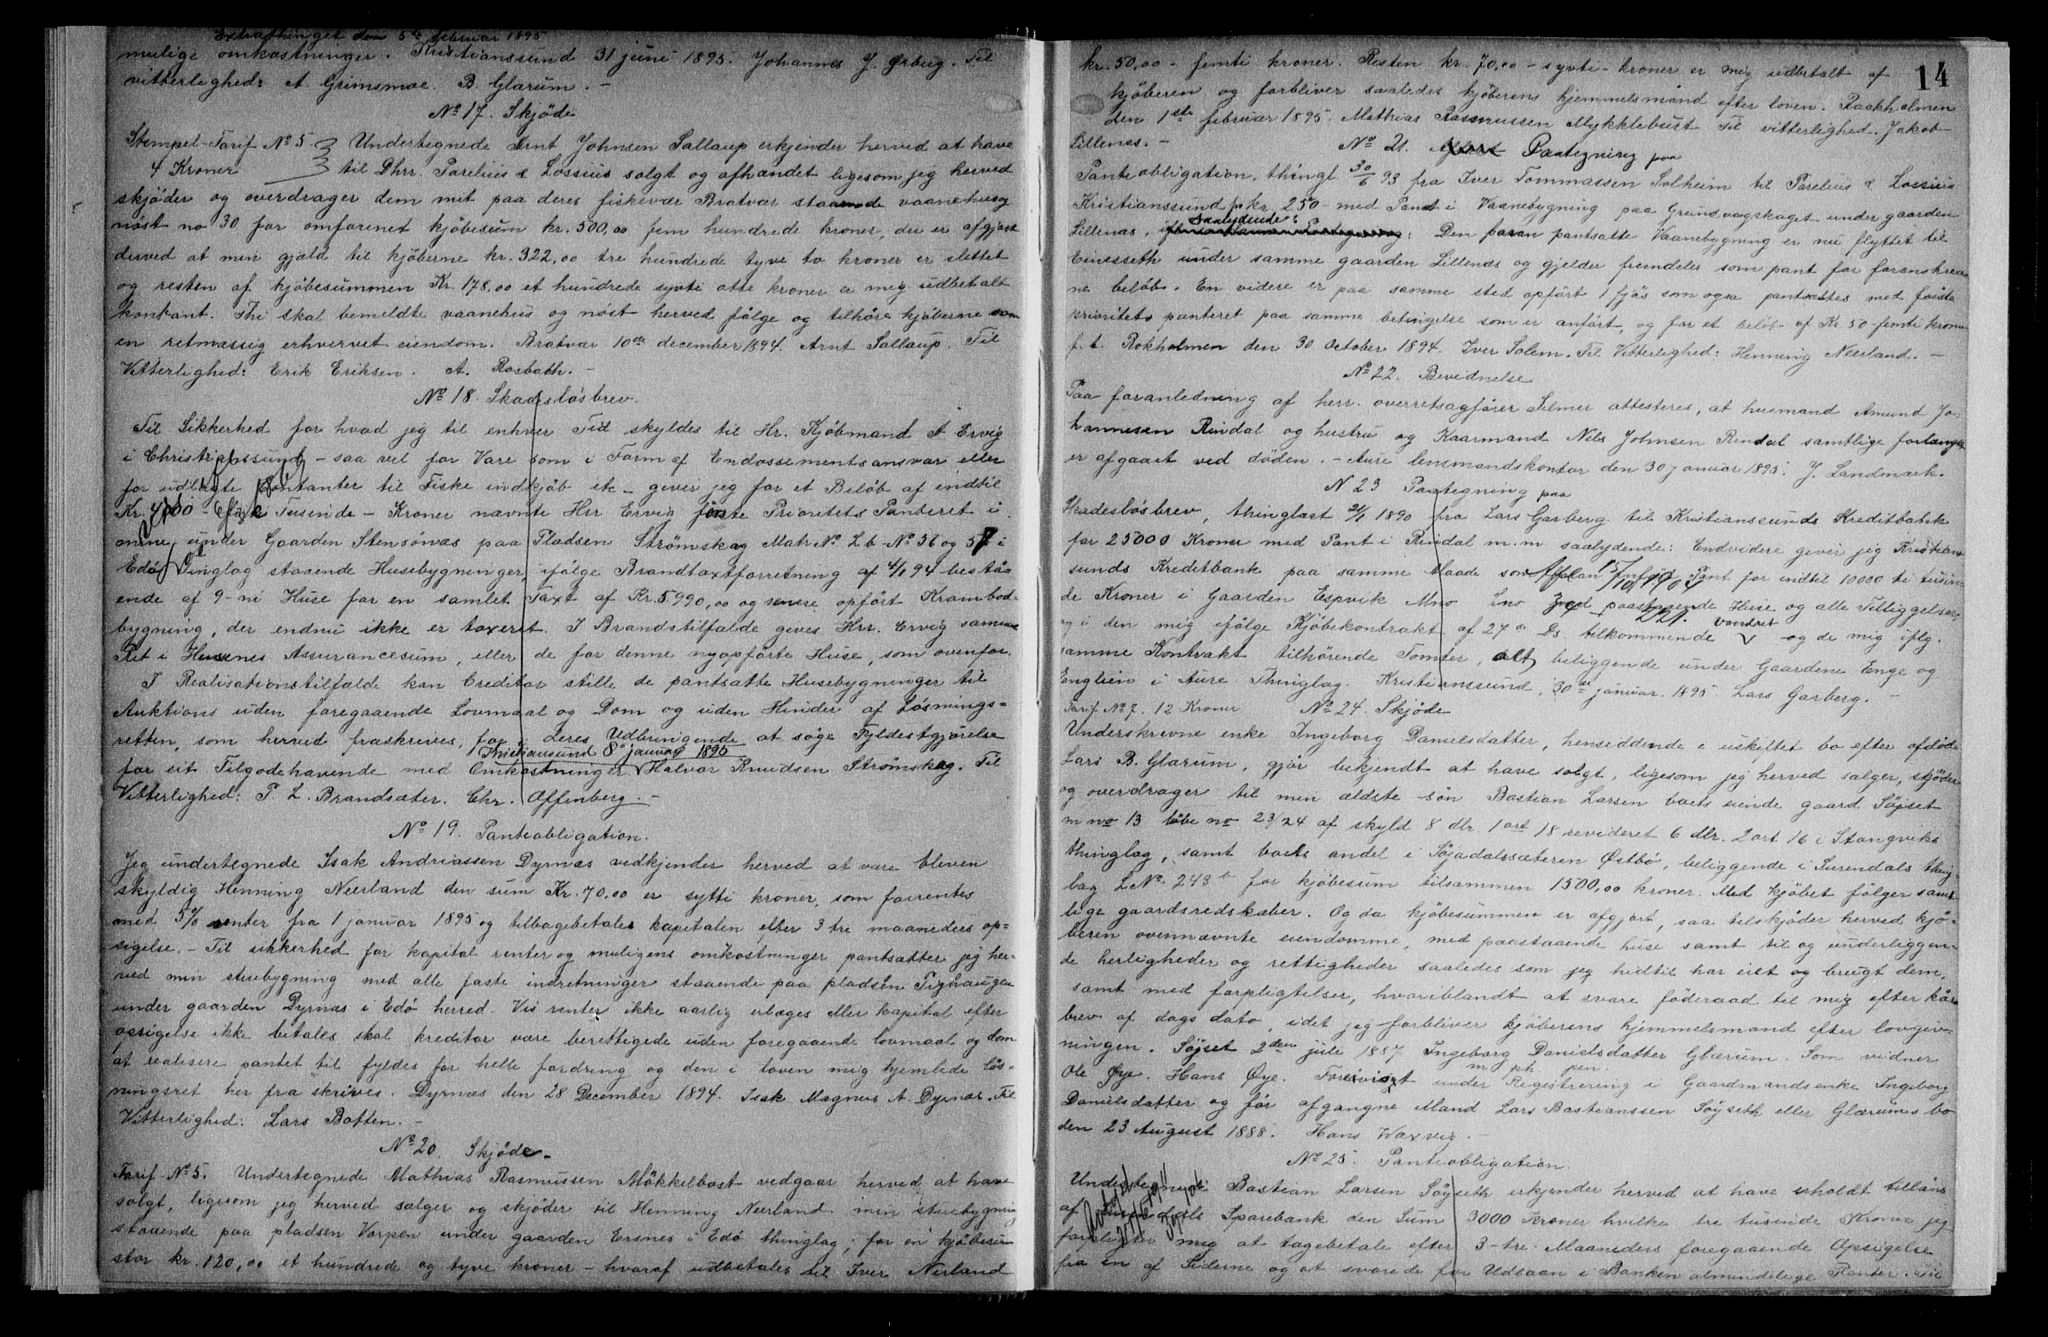 Extrathinget den 5te februar 1895
mulige omkostninger. Kristianssund 31 juni 1895. Johannes J. Ørbug. Til
vitterlighed: A. Grimsmoe. B. Glærum. –
No 17. Skjøde
Stempel-Tarif No 5 Undertegnede Arnt Johnsen Sallaup erkjender herved at have
4 Kroner til Dhrr. Parelius & Lossius solgt og afhændet ligesom jeg herved
skjøder og overdrager dem mit paa deres fiskevær Bratvær staaende vaanehus og
nøst no 30 for omforenet kjøbesum kr. 500,00 fem hundrede kroner, der er afgjort
derved at min gjæld til kjøberne kr. 322,00 tre hundrede tyve to kroner er slettet
og resten af kjøbesummen Kr. 178,00 et hundrede syvti otte kroner er mig udbetalt
kontant. Thi skal bemeldte vaanehus og nøst herved følge og tilhøre kjøberne som
en retmæssig erhvervet eiendom. Bratvær 10de december 1894. Arnt Sallaup. Til
Vitterlighed: Erik Eriksen. A. Rosbach. –
No 18. Skadesløsbrev.
Til Sikkerhed for hvad jeg til enhver Tid skyldes til Hr. Kjøbmand A Ervig
i Christianssund – saa vel for Vare som i Form af Endossementsansvar eller
for udlagte Contanter til Fiske indkjøb etc – giver jeg for et Beløb af indtil
Kr. 4000 – Tusinde – Kroner nævnte Hrr Ervig første Prioritets Panteret i
mine under Gaarden Stensønæs paa Pladsen Strømskag Matr No Lb-No 56 og 57 i
Edø Tinglag staaende Husebygninger, ifølge Brandtaxtforretning af 4/1 94 bestaa-
ende af 9-ni Huse for en samlet Taxt af Kr. 5990,00 og senere opført Krambod-
bygning, der endnu ikke er taxeret. I Brandstilfælde gives Hrr. Ervig samme
Ret i Husenes Assurancesum, eller de for denne nyopførte Huse, som ovenfor.
I Realisationstilfælde kan Creditor stille de pantsatte Husebygninger til
Auktions uden foregaaende Lovmaal og Dom og uden Hinder af Løsnings-
retten, som herved fraskrives, for i deres Udbringende at søge Fyldestgjørelse
Kristiansund 8de januar 1895
for sit Tilgodehavende med Omkostninger Halvor Knudsen Strømskag. Til
Vitterlighed: P. L. Brandsæter. Chr. Offenberg. –
No 19. Panteobligation.
Jeg undertegnede Isak Andriassen Dyrnæs vedkjender herved at være bleven
skyldig Henning Neerland den sum Kr. 70,00 er sytti kroner, som forrentes
med 5% renter fra 1 januar 1895 og tilbagebetales kapitalen efter 3 tre maaneders op-
sigelse. – Til sikkerhed for kapital renter og muligens omkostninger pantsætter jeg her-
ved min stuebygning med alle faste indretninger staaende paa pladsen Tighaugen
under gaarden Dyrnæs i Edø herred. Vis renter ikke aarlig erlæges eller kapital efter
opsigelse ikke betales skal kreditor være berettigede uden foregaaende lovmaal og dom
at realisere pantet til fyldes for helle fordring og den i loven mig hjemlede løs-
ningsret her fra skrives. Dyrnæs den 28 December 1894. Isak Magnus A Dyrnæs. Til
Vitterlighed: Lars Botten. –
No 20. Skjøde –
Tarif No 5. Undertegnede Mathias Rasmussen Møkkelbost vedgaar herved at have
solgt, ligesom jeg herved sælger og skjøder til Henning Neerland min stuebygning
staaende paa pladsen Vorpen under gaarden Ersnes i Edø thinglag; for en kjøbesum
stor kr. 120,00 et hundrede og tyve kroner – hvoraf udbetales til Iver Nerland
14
kr. 50,00 – femti kroner. Resten kr. 70,00 – syvti – kroner er mig udbetalt af
kjøberen og forbliver saaledes kjøberens hjemmelsmand efter loven. Raakholmen
den 1ste februar 1895. Mathias Rasmussen Mykklebust Til vitterlighed. Jakob
Lillenes. –
No 21. Paategning paa
Panteobligation, thingl. 30/6 93 fra Iver Tommassen Solheim til Parelius & Lossius
Kristianssund p kr. 250 – med Pant i Vaanebygning paa Grundvogskaget under gaarden
Lillenæs, saalydende: Den foran pantsatte Vaanebygning er nu flyttet til
Einesseth under samme gaarden Lillenæs og gjelder fremdeles som pant for foranskrev-
ne beløb. En videre er paa samme sted opført 1 fjøs som ogsa pantsættes med første
prioritets panteret paa samme betingelse som er anført, og for et beløb af Kr 50 femti kroner
f. t. Rokholmen den 30 October 1894. Iver Solem. Til Vitterlighed: Henning Neerland. –
No 22. Bevidnelse
Paa foranledning af herr. overretsagfører Selmer attesteres, at husmand Amund Jo-
hannesen Rindal og hustru og Kaarmand Nils Johnsen Rindal samtlige forlængst
er afgaaet ved døden. – Aure lensmandskontor den 30 januar 1895. J. Landmark.
N 23 Paategning paa
Skadesløsbrev, thinglæst 2/1 1890 fra Lars Garberg til Kristianssunds Kreditbank
for 25000 Kroner med Pant i Rindal m.m saalydende: Endvidere giver jeg Kristian-
sunds Kreditbank paa samme Maade som Pant for indtil 10000 ti tusin-
de Kroner i Gaarden Espvik Mno Lno paastaaende Huse og alle Tilliggelser
og i den mig ifølge Kjøbekontrakt af 27de Ds. tilkommende vandret og de mig iflg.
samme Kontrakt tilhørende Tomter, alt beliggende under Gaardene Enge og
Englien i Aure Thinglag. Kristianssund, 30te januar. 1895 Lars Garberg. –
Tarif No 7. 12 Kroner No 24. Skjøde
Underskrevne enke Ingeborg Danielsdatter, hensiddende i uskiftet bo efter afdøde
Lars B. Glærum, gjør bekjendt at have solgt, ligesom jeg herved sælger, skjøder
og overdrager til min ældste søn Bastian Larsen boets eiende gaard Søjset
m no 13 løbe no 23/24 af skyld 8 dlr 1 ort 18 revideret 6 dlr. 2 ort 16 i Stangviks
thinglag, samt boets andel i Søjadalssæteren Østbø, beliggende i Surendals thing-
lag L No. 243 b for kjøbesum tilsammen 1500,00 kroner. Med kjøbet følger samt-
lige gaardsredskaber. Og da kjøbesummen er afgjort, saa tilskjøder herved kjø-
beren ovennævnte eiendomme, med paastaaende huse samt til og underliggen-
de herligheder og rettigheder saaledes som jeg hidtil har eiet og brugt dem,
samt med forpligtelser, hvoriblandt at svare føderaad til mig efter kår
brev af dags dato, idet jeg forbliver kjøberens hjemmelsmand efter lovgiv-
ningen. Søjset 2den juli 1887 Ingeborg Danielsdatter Glærum. Som vidner
m. ph. pen.
Ole Øye. Hans Øye. Forevist under Registrering i Gaardmandsenke Ingeborg
Danielsdatter og før afgangne Mand Lars Bastianssen Søyseth eller Glærums bo
den 23 August 1888. Hans Waxvig. –
No 25. Panteobligation.
Undertegnede Bastian Larsen Søyseth erkjender herved at have erholdt tillaans
af Surendals Sparebank den Sum 3000 Kroner hvilke tre tusinde Kroner jeg
forpligter mig at tagebetale efter 3-tre Maaneders foregaaende Opsigelse
fra en af Siderne og at svarede for Udsaan i Banken almindelige Renter. Til